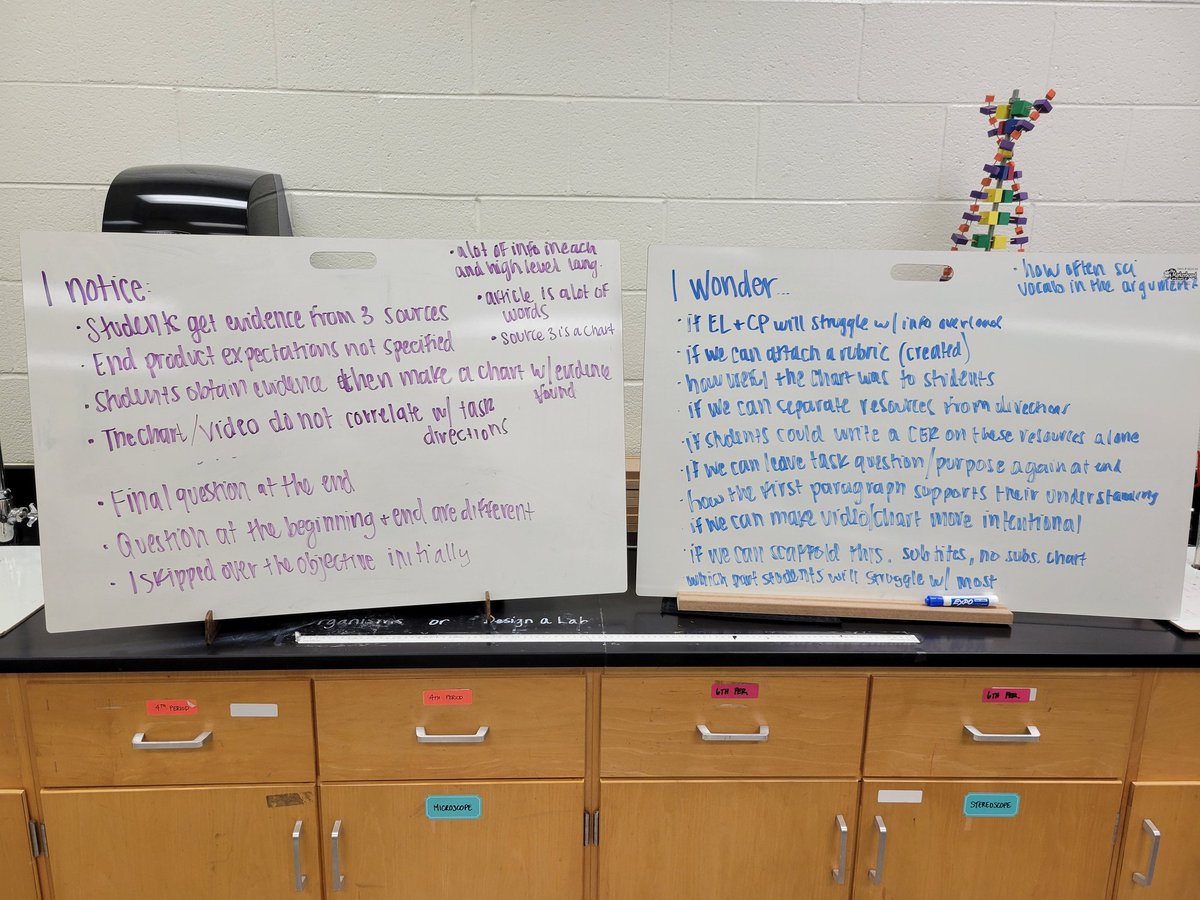 I notice:
· Students get evidence from 3 sources
· End product expectations not specified
· Students obtain evidence then make a chart w/ evidence
found
· The chart/video do not correlate w/ task
directions
· Final question at the end
· Question at the beginning + end are different
· I skipped over the objective initially
· a lot of info in each
and high level lang.
· article is a lot of
words
· Source 3 is a chart
I wonder...
· if EL + CP will struggle w/ info overload
· if we can attach a rubric (created)
· how useful the chart was to students
· if we can separate resources from directions
· if students could write a CER on these resources alone
· if we can leave task question/purpose again at end
· how the first paragraph supports their understanding
if we can make video/chart more intentional
· if we can scaffold this. subtites, no subs. chart
which part students will struggle w/ most
· how often sci
vocab in the argument?
EXPO
or Design a Lab
4TH PERIOD
4TH PERIOD
6TH PER.
6TH PER.
MICROSCOPE
STEREOSCOPE